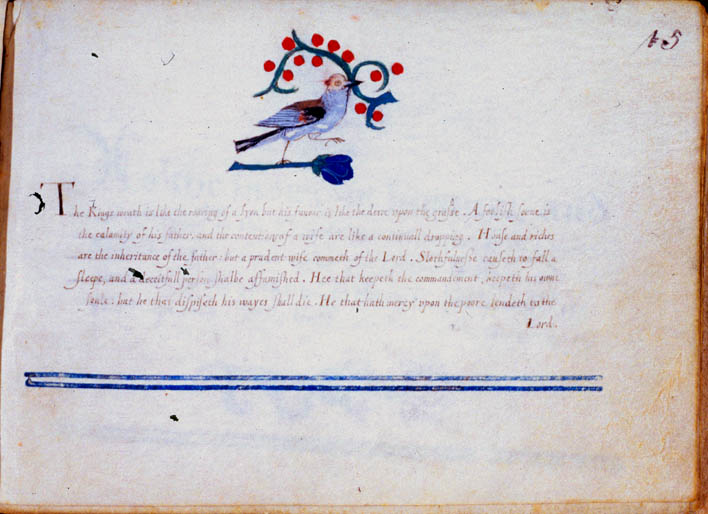 45
The Kings wrath is like the roaring of a lyon but his favour is like the dewe upon the grasse. A foolish sonne is
the calamity of his father, and the contention of a wife are like a continuall dropping. House and riches
are the inheritance of the father: but a prudent wife commeth of the Lord. Slothfulnesse causeth to fall a
sleepe, and a deceitfull person shalbe affamished. Hee that keepeth the commandement, keepeth his owne
soule: but he that dispiseth his wayes shall die. He that hath mercy upon the poore lendeth to the
Lord.